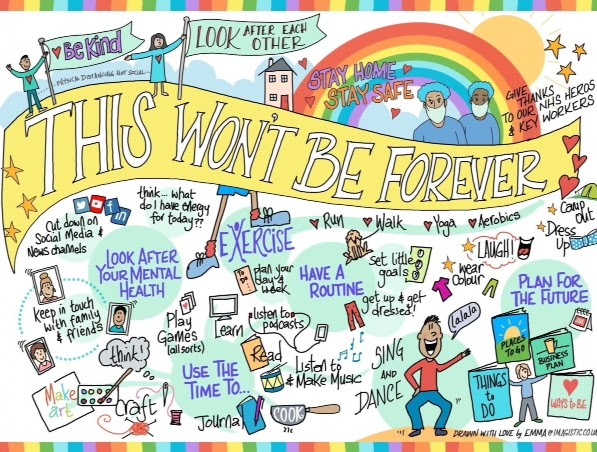 Be Kind
LOOK AFTER EACH
OTHER
PHYSICAL DISTANCING NOT SOCIAL...
STAY HOME
STAY SAFE
GIVE THANKS
TO OUR NHS HEROS
& KEY WORKERS
THIS WON'T BE FOREVER
Cut down on
Social Media &
News channels
think... what
do I have energy
for today??
EXERCISE
Run
Walk
Yoga
Aerobics
Camp
out
Dress
Up
LAUGH!
wear
Colour
LOOK AFTER
YOUR MENTAL
HEALTH
plan your
day &
week
HAVE A
ROUTINE
set little
goals
get up & get
dressed!
PLAN FOR
THE FUTURE
keep in touch
with family
& friends
Play
Games
(all sorts)
Learn
listen to
podcasts
Read
Listen to
& Make Music
think!
USE THE
TIME TO...
Make
art
Craft
Journal
COOK
SING
AND
DANCE
lalala
PLACES
TO GO
BUSINESS
PLAN
THINGS
to
DO
WAYS to BE
DRAWN WITH LOVE by EMMA @IMAGISTIC.CO.UK